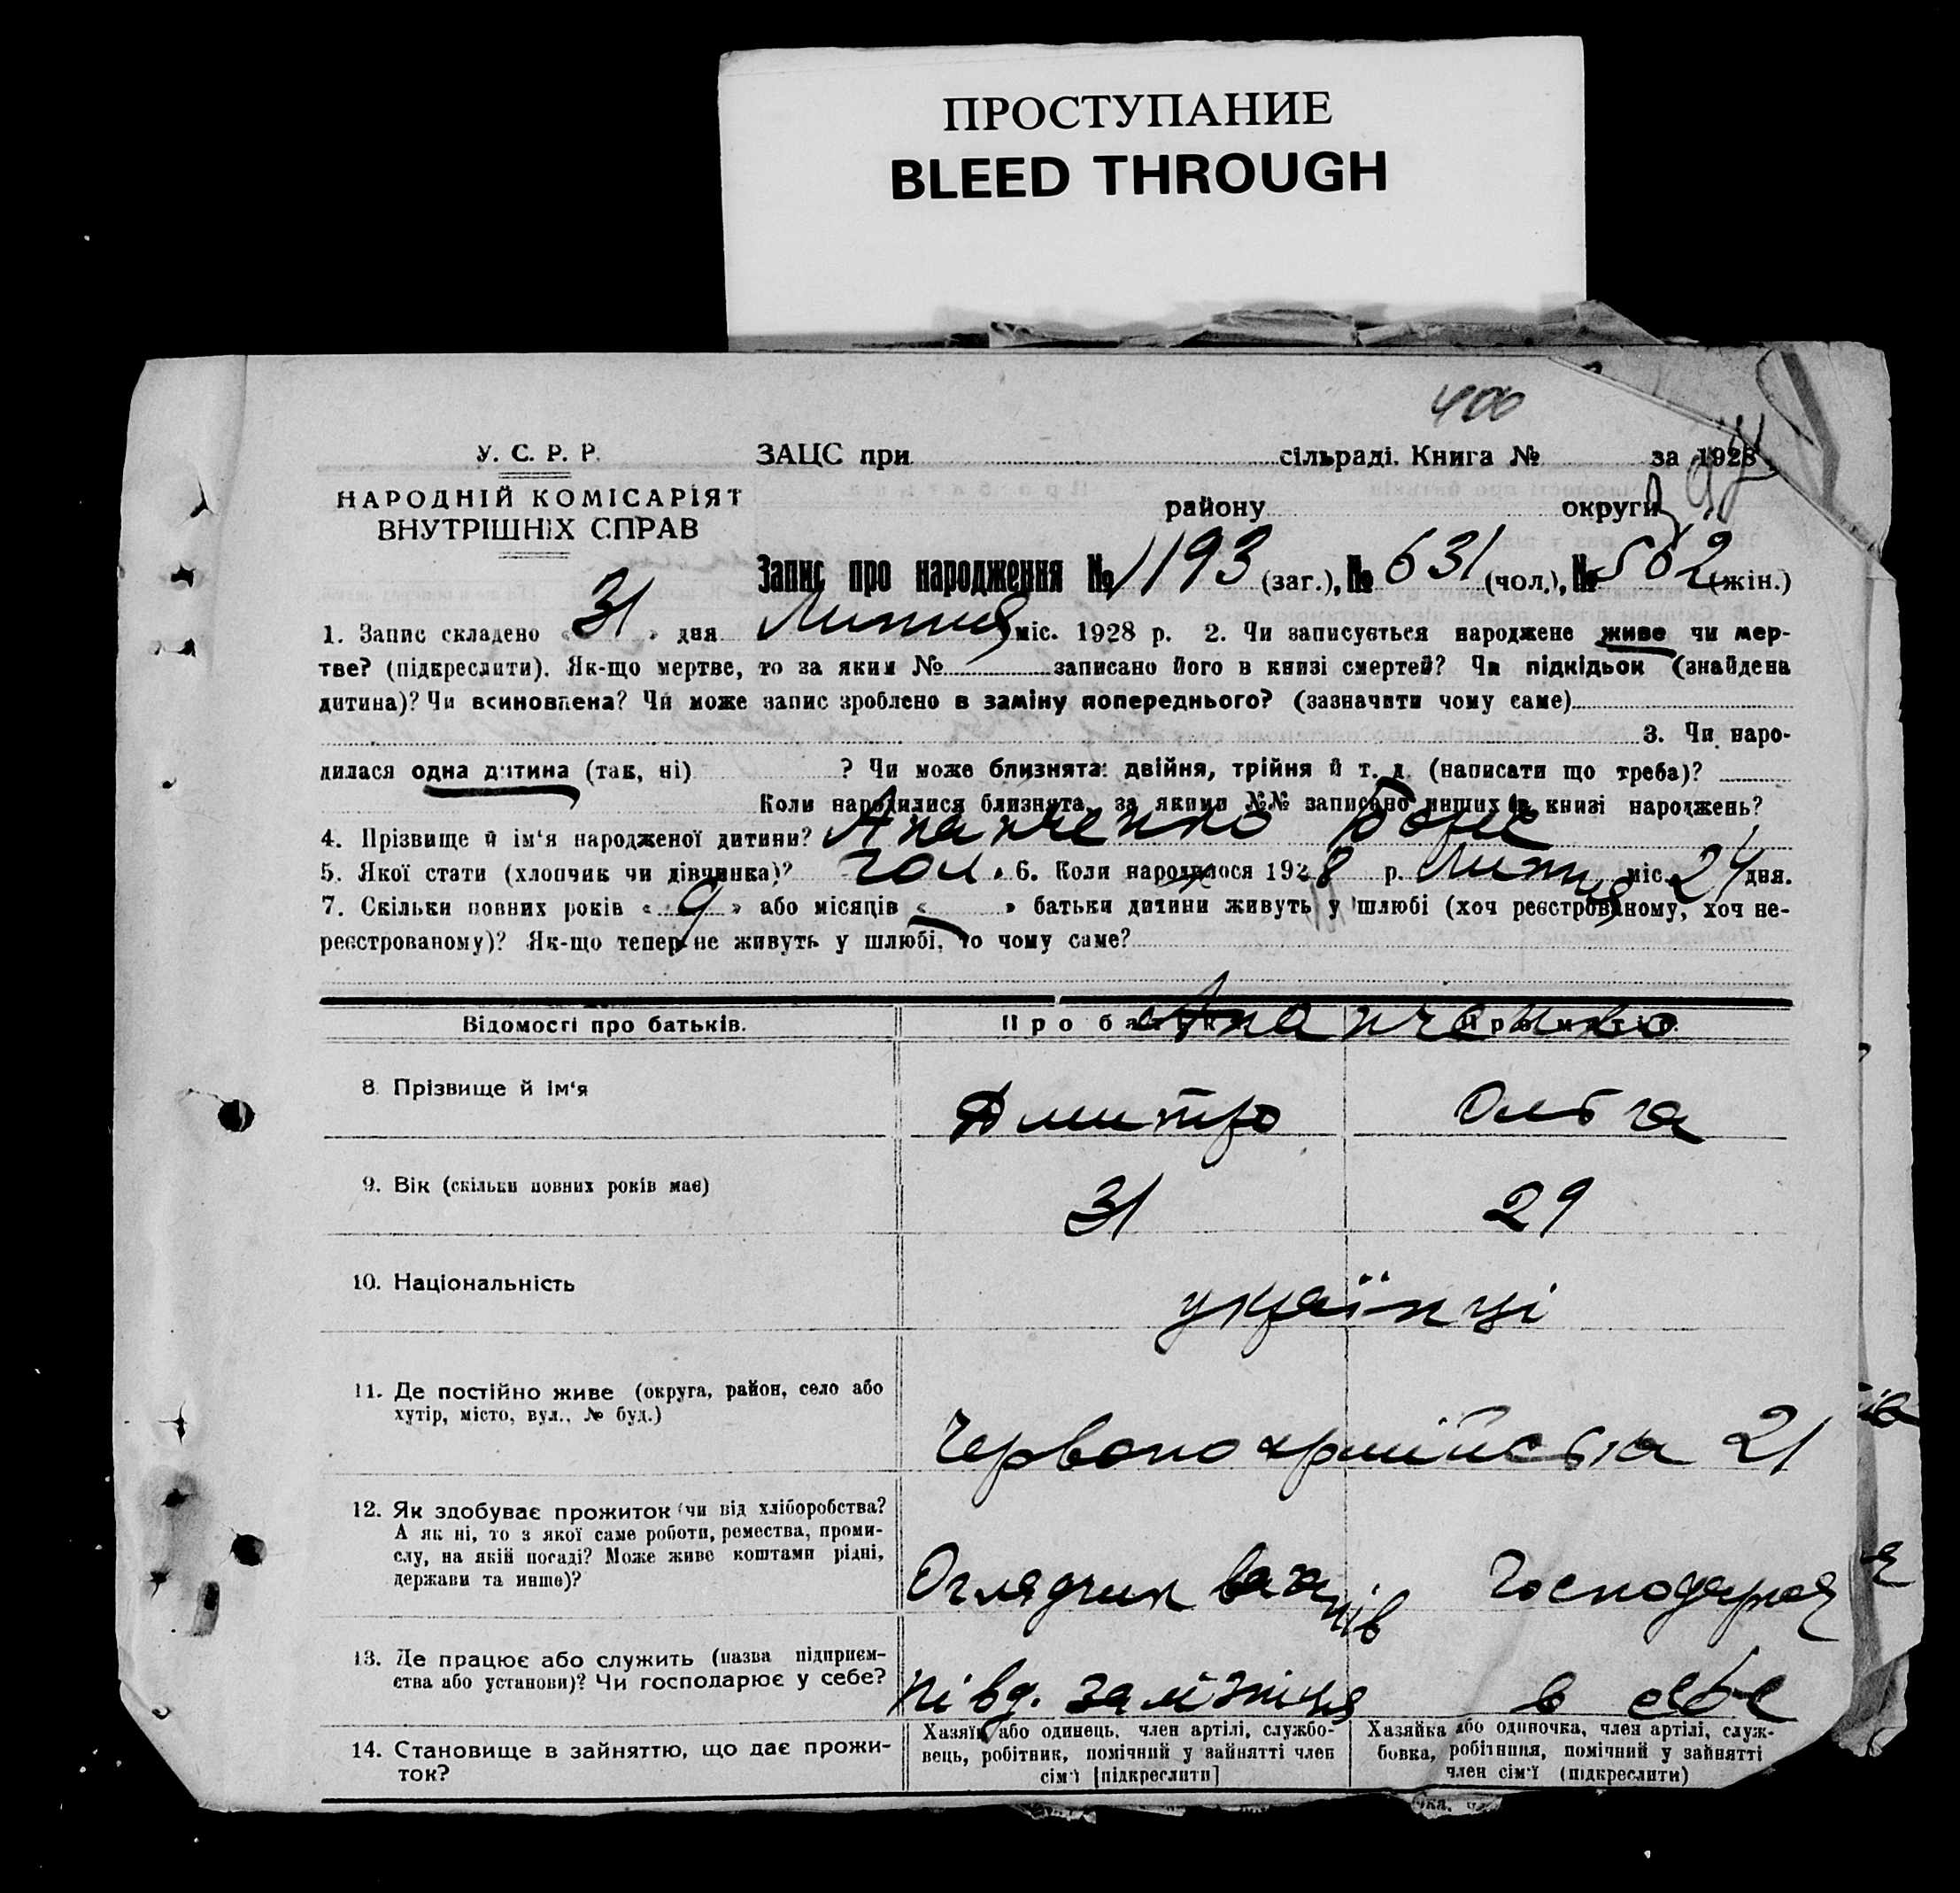 ПРОСТУПАНИЕ
BLEED THROUGH
400
У. С. Р. Р.
НАРОДНІЙ КОМІСАРІЯТ
ВНУТРІШНІХ СПРАВ
ЗАЦС при сільраді. Книга № за 1928
району округи
Запис про народження № 1193 (заг.), № 631 (чол.), № 562 (жін.)
1. Запис складено « 31 » дня Липня міс. 1928 р. 2. Чи записується народжене живе чи мер-
тве? (підкреслити). Як-що мертве, то за яким № записано його в книзі смертей? Чи підкідьок (знайдена
дитина)? Чи всиновлена? Чи може запис зроблено в заміну попереднього? (зазначити чому саме)
3. Чи наро-
дилася одна дитина (так, ні) ? Чи може близнята: двійня, трійня й т. д. (написати що треба)?
Коли народилися близнята, за якими №№ записано инших в книзі народжень?
4. Прізвище й ім'я народженої дитини? Апанченко
5. Якої стати (хлопчик чи дівчинка)? чол. 6. Коли народилося 1928 р. Липня міс. 24 дня.
7. Скільки повних років « 9 » або місяців « » батьки дитини живуть у шлюбі (хоч реєстрованому, хоч не-
реєстрованому)? Як-що тепер не живуть у шлюбі, то чому саме?
Відомості про батьків. Про батька Про матір
Апанченко
8. Прізвище й ім'я Дмитро Ольга
9. Вік (скільки повних років має) 31 29
10. Національність українці
11. Де постійно живе (округа, район, село або
хутір, місто, вул., № буд.)
Червоноармійська 21
12. Як здобуває прожиток (чи від хліборобства?
А як ні, то з якої саме роботи, ремества, проми-
слу, на якій посаді? Може живе коштами рідні,
держави та инше)?
Оглядчик вагонів Господарка
13. Де працює або служить (назва підприєм-
ства або установи)? Чи господарює у себе?
Півд. залізниця в себе
14. Становище в зайняттю, що дає прожи-
ток?
Хазяїн або одинець, член артілі, службо-
вець, робітник, помічний у зайнятті член
сім'ї [підкреслити]
Хазяйка або одиночка, член артілі, служ-
бовка, робітниця, помічний у зайнятті
член сім'ї (підкреслити)